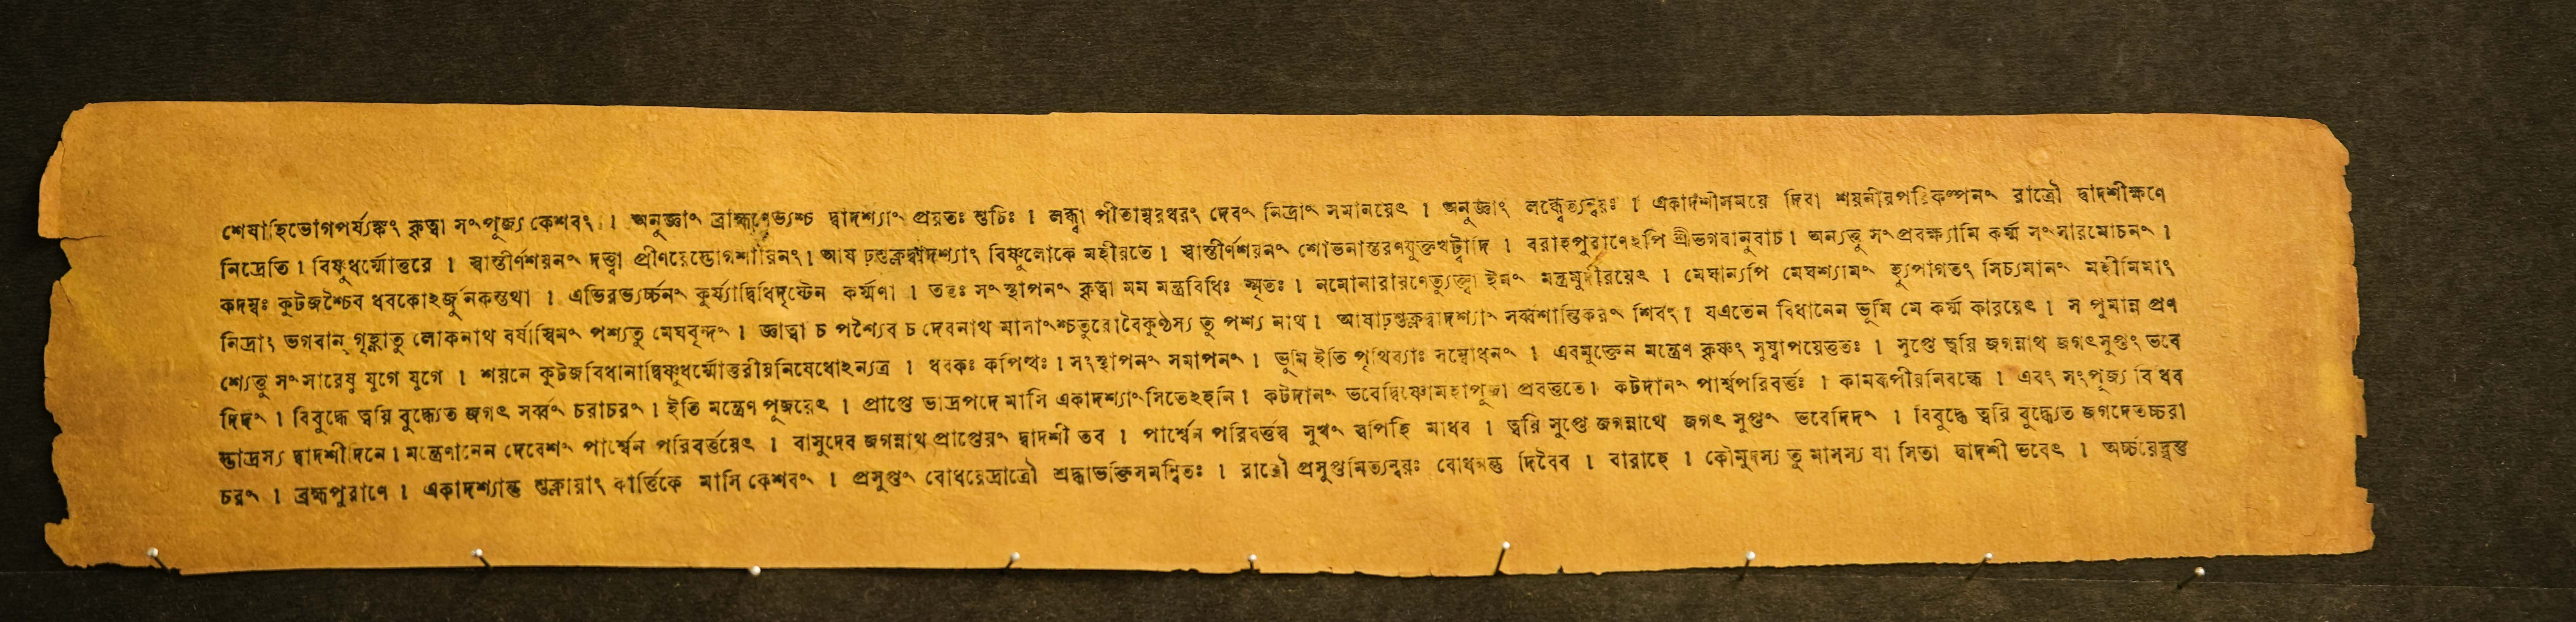 শেষাহিভোগপর্য্যঙ্কং কৃত্বা সংপূজ্য কেশবং । অনুজ্ঞাং ব্রাহ্মণেভ্যশ্চ দ্বাদশ্যাং প্রয়তঃ শুচিঃ । লব্ধ্বা পীতাম্বরধরং দেবং নিদ্রাং সমানয়েৎ । অনুজ্ঞাং লব্ধ্বেত্যন্বয়ঃ । একাদশীসময়ে দিবা শয়নীয়পরিকল্পনং রাত্রৌ দ্বাদশীক্ষণে
নিদ্রেতি । বিষ্ণুধর্ম্মোত্তরে । স্বাস্তীর্ণশয়নং দত্ত্বা প্রীণয়েদ্ভোগশায়িনং । আষাঢ়শুক্লদ্বাদশ্যাং বিষ্ণুলোকে মহীয়তে । স্বাস্তীর্ণশয়নং শোভনাস্তরণযুক্তখট্বাদি । বরাহপুরাণেঽপি শ্রীভগবানুবাচ । অন্যত্তু সংপ্রবক্ষ্যামি কর্ম্ম সংসারমোচনং ।
কদম্বঃ কুটজশ্চৈব ধবকোঽর্জুনকস্তথা । এভিরভ্যর্চ্চনং কুর্য্যাদ্বিধিদৃষ্টেন কর্ম্মণা । ততঃ সংস্থাপনং কৃত্বা মম মন্ত্রবিধিঃ স্মৃতঃ । নমোনারায়ণেত্যুক্ত্বা ইমং মন্ত্রমুদীরয়েৎ । মেঘান্যপি মেঘশ্যামং হ্যুপাগতং সিচ্যমানং মহীমিমাং
নিদ্রাং ভগবান্ গৃহ্ণাতু লোকনাথ বর্ষাস্বিমং পশ্যতু মেঘবৃন্দং । জ্ঞাত্বা চ পশ্যৈব চ দেবনাথ মাসাংশ্চতুরোবৈকুণ্ঠস্য তু পশ্য নাথ । আষাঢ়শুক্লদ্বাদশ্যাং সর্ব্বশান্তিকরং শিবং । যএতেন বিধানেন ভূমি মে কর্ম্ম কারয়েৎ । স পুমান্ন প্রণ
শ্যেত্তু সংসারেষু যুগে যুগে । শয়নে কুটজবিধানাদ্বিষ্ণুধর্ম্মোত্তরীয়নিষেধোঽন্যত্র । ধবকঃ কপিত্থঃ । সংস্থাপনং সমাপনং । ভূমি ইতি পৃথিব্যাঃ সম্বোধনং । এবমুক্তেন মন্ত্রেণ কৃষ্ণং সুষ্বাপয়েত্ততঃ । সুপ্তে ত্বয়ি জগন্নাথ জগৎসুপ্তং ভবে
দিদং । বিবুদ্ধে ত্বয়ি বুদ্ধ্যেত জগৎ সর্ব্বং চরাচরং । ইতি মন্ত্রেণ পূজয়েৎ । প্রাপ্তে ভাদ্রপদে মাসি একাদশ্যাংসিতেঽহনি । কটদানং ভবেদ্বিষ্ণোর্মহাপূজা প্রবর্ত্ততে । কটদানং পার্শ্বপরিবর্ত্তঃ । কামরূপীয়নিবন্ধে । এবং সংপূজ্য বিধিব
দ্ভাদ্রস্য দ্বাদশীদিনে । মন্ত্রেণানেন দেবেশং পার্শ্বেন পরিবর্ত্তয়েৎ । বাসুদেব জগন্নাথ প্রাপ্তেয়ং দ্বাদশী তব । পার্শ্বেন পরিবর্ত্তস্ব সুখং স্বপিহি মাধব । ত্বয়ি সুপ্তে জগন্নাথে জগৎ সুপ্তং ভবেদিদং । বিবুদ্ধে ত্বয়ি বুদ্ধ্যেত জগদেতচ্চরা
চরং । ব্রহ্মপুরাণে । একাদশ্যান্তু শুক্লায়াং কার্ত্তিকে মাসি কেশবং । প্রসুপ্তং বোধয়েদ্রাত্রৌ শ্রদ্ধাভক্তিসমন্বিতঃ । রাত্রৌ প্রসুপ্তমিত্যন্বয়ঃ বোধনন্তু দিবৈব । বারাহে । কৌমুদস্য তু মাসস্য যা সিতা দ্বাদশী ভবেৎ । অর্চ্চয়েদ্যস্তু